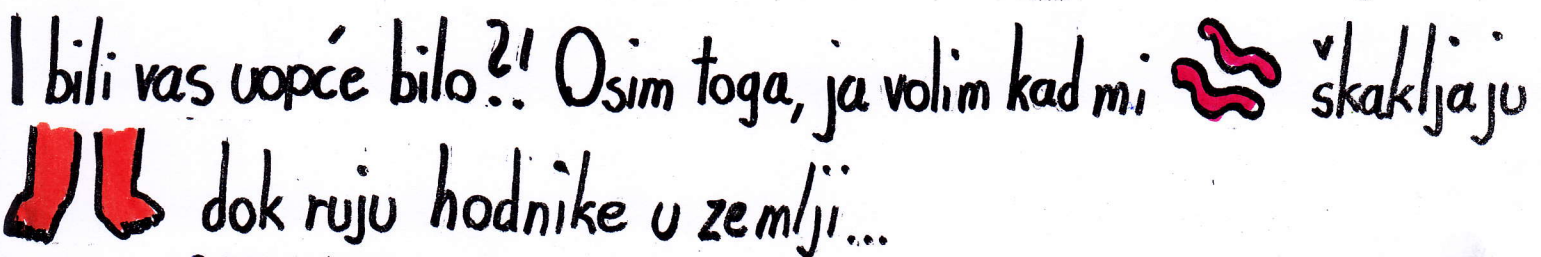 I bili vas uopće bilo?! Osim toga, ja volim kad mi škakljaju
dok ruju hodnike u zemlji...